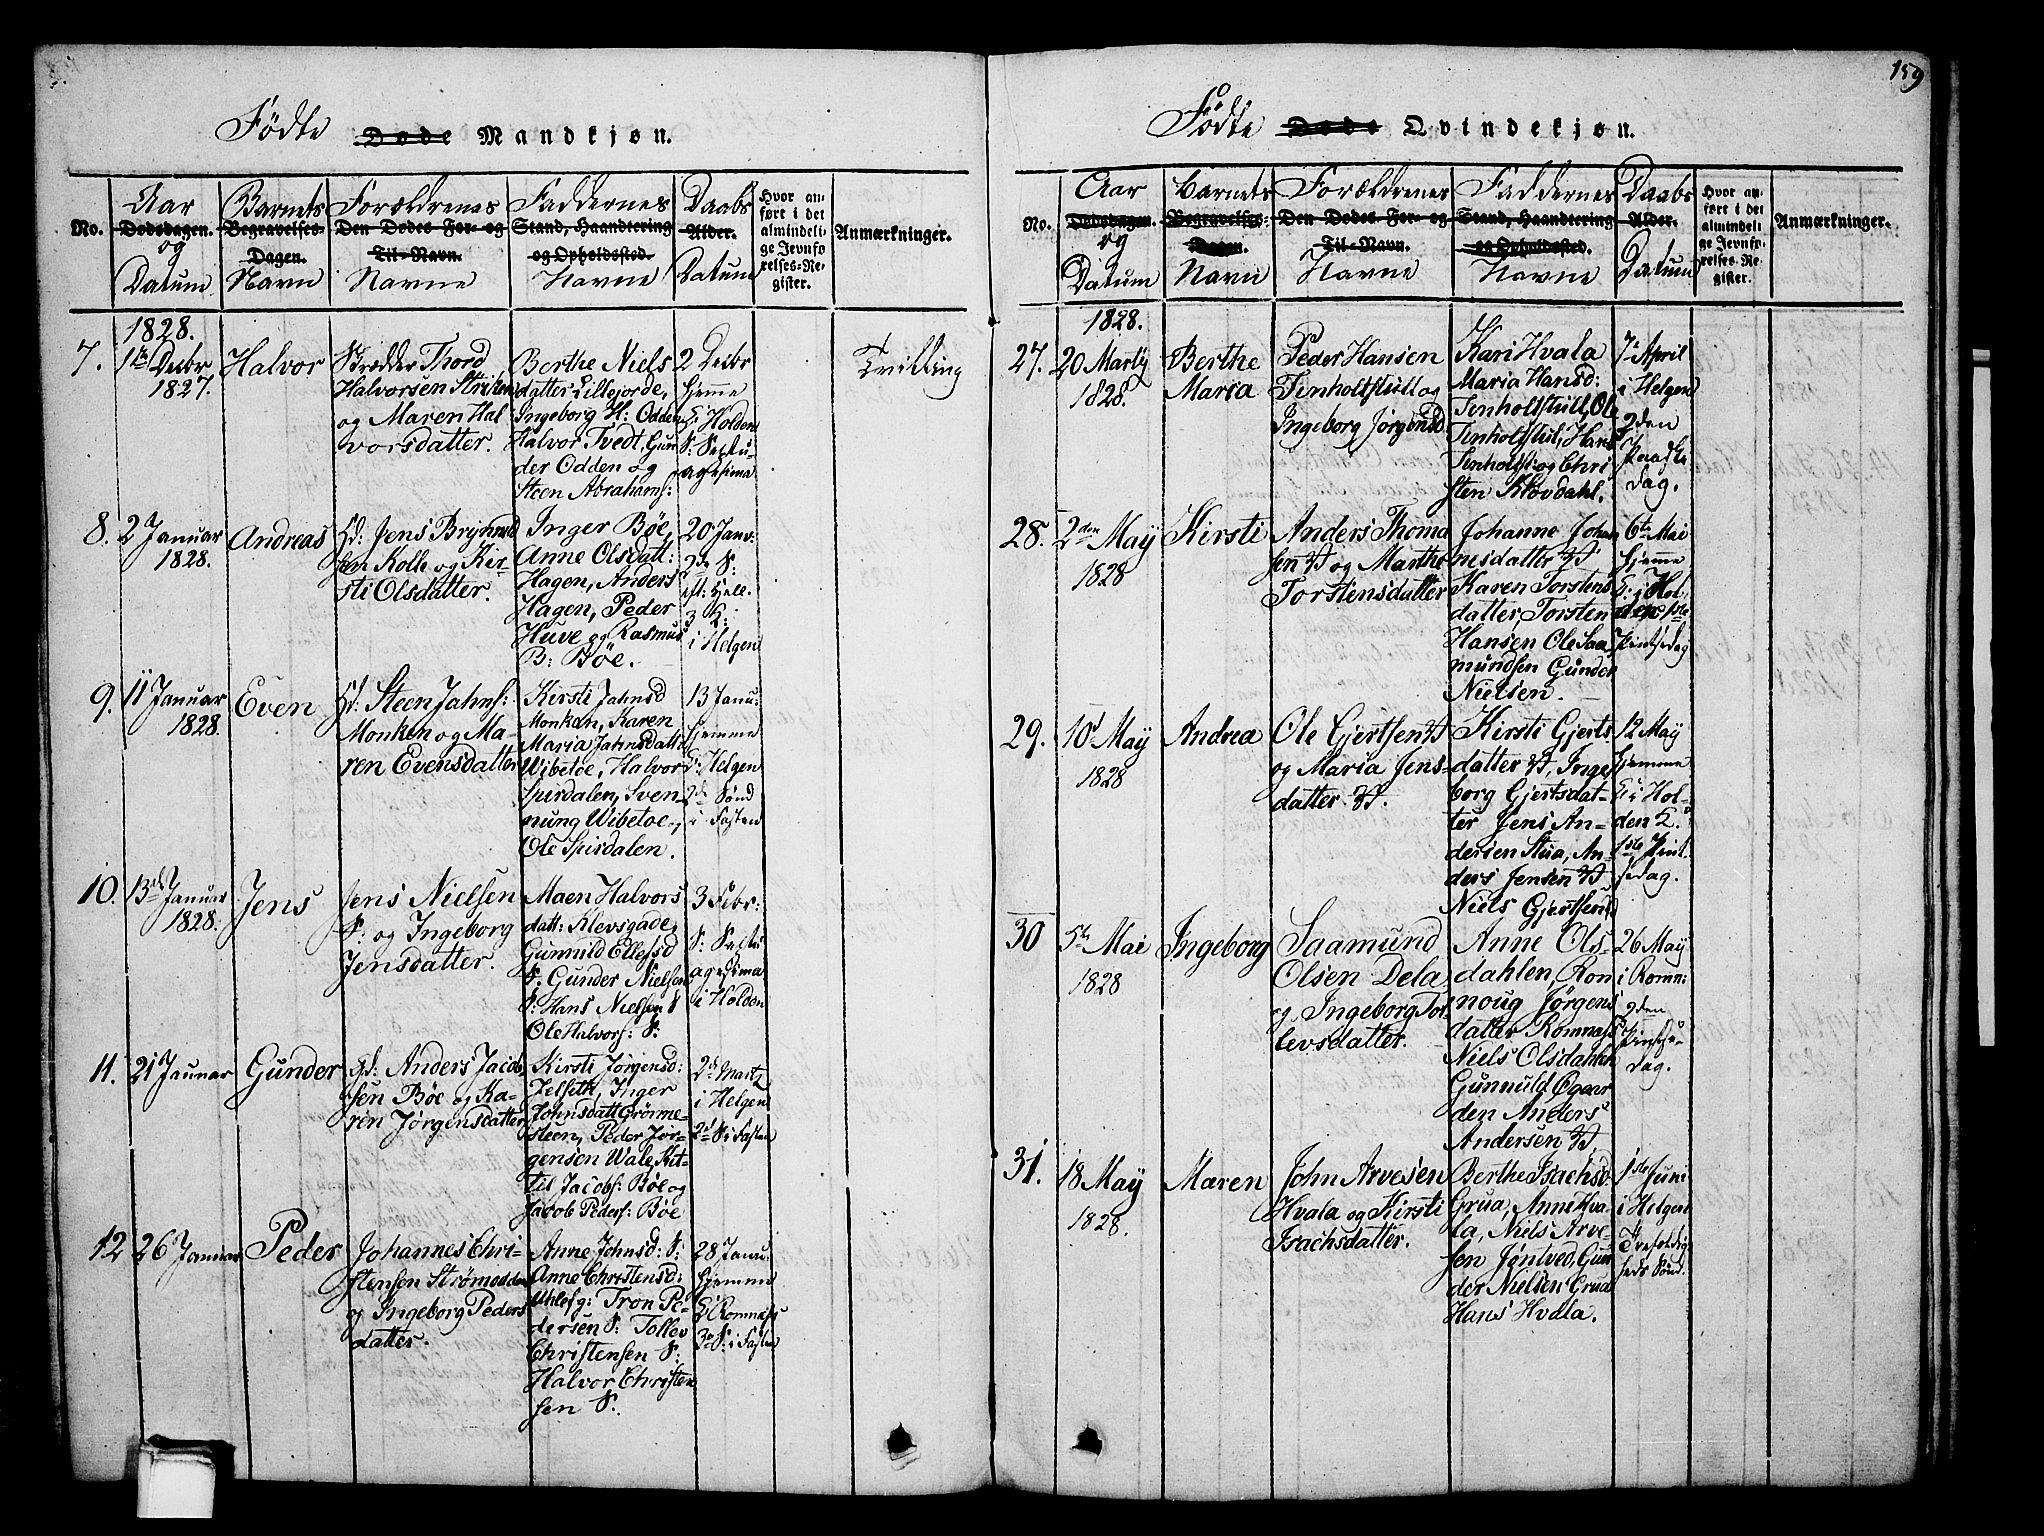 159
Fødte Døde Mandkjøn.
No.
Aar
Dødsdagen.
og
Datum
Barnets
Begravelses-
Dagen.
Navn
Forældrenes
Den Dødes For- og
Til-Navn.
Navne
Faddernes
Stand, Haandtering
og Opholdssted.
Navne
Daabs
Alder.
Datum
Hvor an-
ført i det
almindeli-
ge Jevnfø-
relses-Re-
gister.
Anmærkninger.
1828.
7.
1te Decbr
1827.
Halvor
Skrædder Thord
Halvorsen
og Maren Hal
vorsdatter.
Berthe Niels
datter Lillejorde,
Ingeborg H: Odden
Halvor Tvedt, Gun
der Odden og
Steen Abrahams:
2 Decbr
hjemme
i Holden
S: Septu-
agesima
Tvilling
8.
2 Januar
1828.
Andreas
Jens Brynild
sen Kolle og Kir-
sti Olsdatter.
Inger Bøe,
Anne Olsdatt:
Hagen, Anders
Hagen, Peder
Huve og Rasmus
B: Bøe.
20 Janv:
2de S:
eft: Hell.
3 K:
i Helgen
9.
11 Januar
1828.
Even
Steen Jahns:
Monken og Ma-
ren Evensdatter
Kirsti Jahnsd
Monkan, Karen
Maria Jahnsdatt
Wibetoe, Halvor
Spirdalen, Sven
nung Wibetoe,
Ole Spirdalen.
13 Janu:
hjemme
Helgen
2de Sønd
i Fasten
10.
13de Januar
1828.
Jens
Jens Nielsen
S: og Ingeborg
Jensdatter.
Maen Halvors
datt: Klevsgade,
Gunnild Ellefsd
S. Gunder Nielsen
S: Hans Nielsen S
Ole Halvors: S:
3 Febr:
S: Septu
agesima
i Holden
11.
21 Januar
Gunder
Gd: Anders Jacob
sen Bøe og Ka-
ren Jørgensdatter
Kirsti Jørgensd:
Jelseth, Inger
Johnsdatt Grønne-
steen, Peder Jør-
gensen Wale, Kit-
til Jacobs: Bøe og
Jacob Peders: Bøe
2de Martz
i Helgen
2d S: i Fasten
12
26 Januar
Peder
Johannes Chri-
stensen Strømodden
og Ingeborg Peders
datter.
Anne Johnsd: S:
Anne Christensd:
Uhlefg: Tron Pe-
dersen S: Tollev
Christensen S:
Halvor Christen
sen S.
28 Janu:
hjemme
Romnæss
3de S: i Fasten
Fødte Døde Qvindekjøn.
No.
Aar
Dødsdagen.
og
Datum
Barnets
Begravelses-
Dagen.
Navn
Forældrenes
Den Dødes For- og
Til-Navn.
Navne
Faddernes
Stand, Haandtering
og Opholdssted.
Navne
Daabs
Alder.
Datum
Hvor an-
ført i det
almindeli-
ge Jevnfø-
relses-Re-
gister.
Anmærkninger.
1828.
27.
20 Martz
1828.
Berthe
Maria
Peder Hansen
Tinholtstull og
Ingeborg Jørgensd
Kari Hvala
Maria Hansd:
Tinholtstull, Ole
Tinholtstul, Hans
Tinholtst: og Chri
sten Skovdahl.
7de April
i Helgen
2den
Paaske
Dag.
28.
2den May
1828
Kirsti
Anders Thoma
sen og Marthe
Torstensdatter
Johanne Johan
nesdatter
Karen Torstens
datter, Torsten
Hansen Ole Saa
mundsen Gunder
Nielsen.
6te Mai
hjemme
i Hol
den 1ste
Pintsedag
29.
10d May
1828
Andrea
Ole Gjertsen
og Maria Jens-
datter
Kirsti Gjerts
datter, Inge
borg Gjertsdat-
ter Jens An-
dersen Stua, An-
ders Jensen
Niels Gjertsen
12 May
hjemme
i Hol-
den K.
1ste Pint.
sedag.
30
5te Mai
1828
Ingeborg
Saamund
Olsen Dela
og Ingeborg Tor
levsdatter.
Anne Ols-
dahlen, Ron
noug Jørgens
datter Romnæss
Niels Olsdahlen
Gunnuld Ogaar
den Anders
Andersen
26 May
i Romn:
2den
Pintse-
dag.
31.
18 May
1828.
Maren
John Arvesen
Hvala og Kirsti
Isachsdatter.
Berthe Isachsd
Grua, Anne Hva-
la, Niels Arve-
sen Jøntved, Gun
der Nielsen Grua
Hans Hvala.
1ste Juni
i Helgen
Trefoldig
heds Sønd.